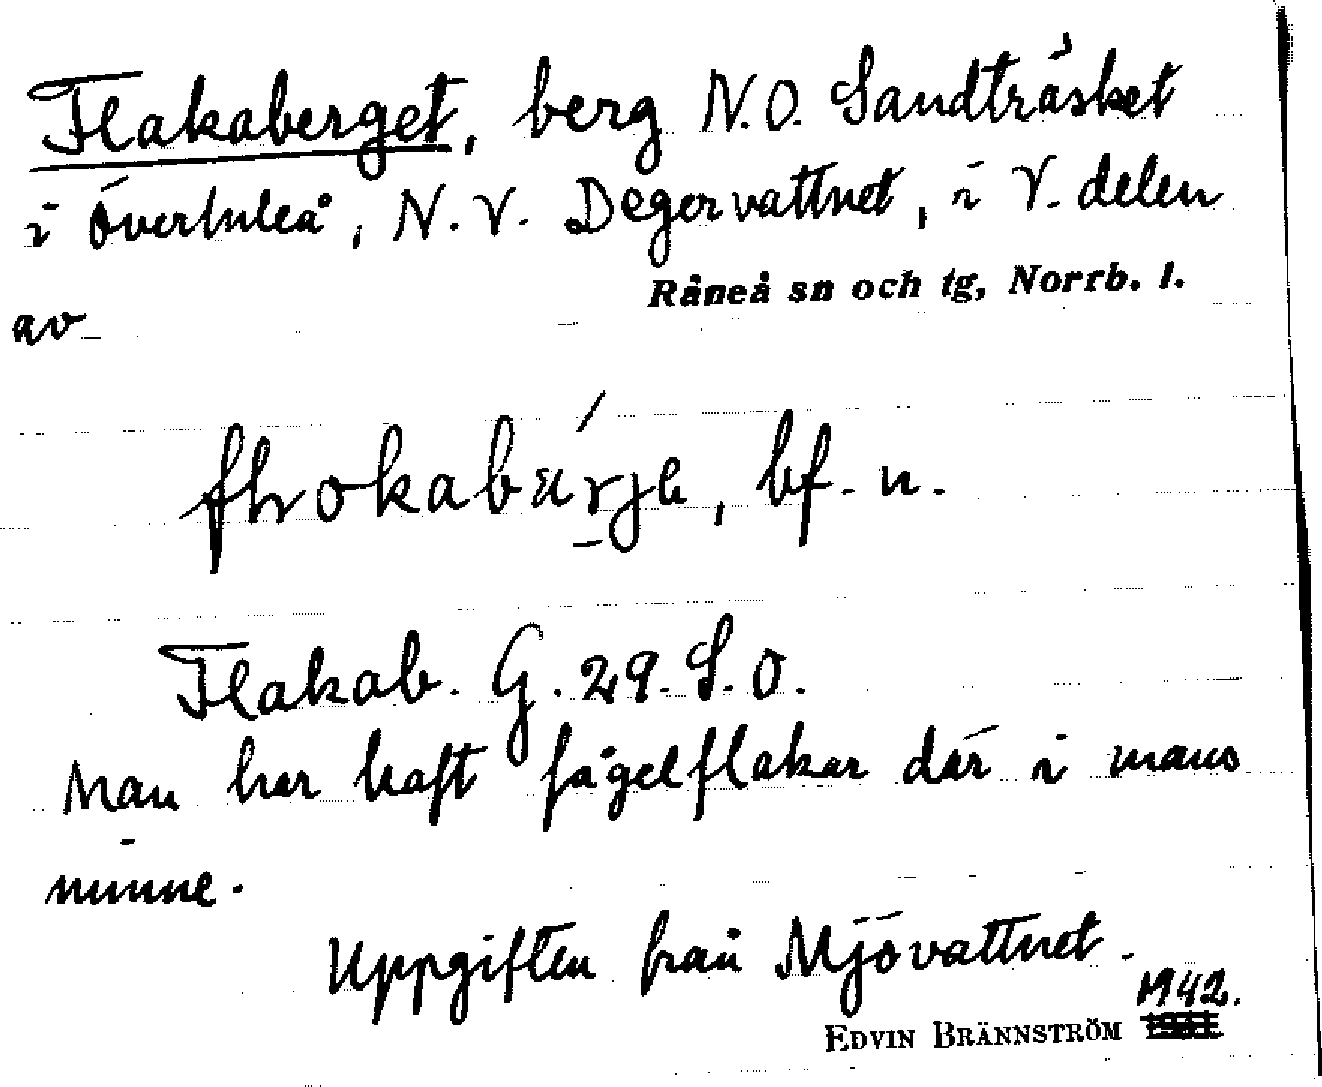 Flakaberget, berg N.O. Sandträsket
i Överluleå, N.V. Degervattnet, i V. delen
Råneå sn och tg, Norrb. l.
av
bf. n.
Flakab. G. 29. S.O.
Man har haft fågelflakar där i mans
minne.
Uppgiften från Mjövattnet.
1942.
EDVIN BRÄNNSTRÖM